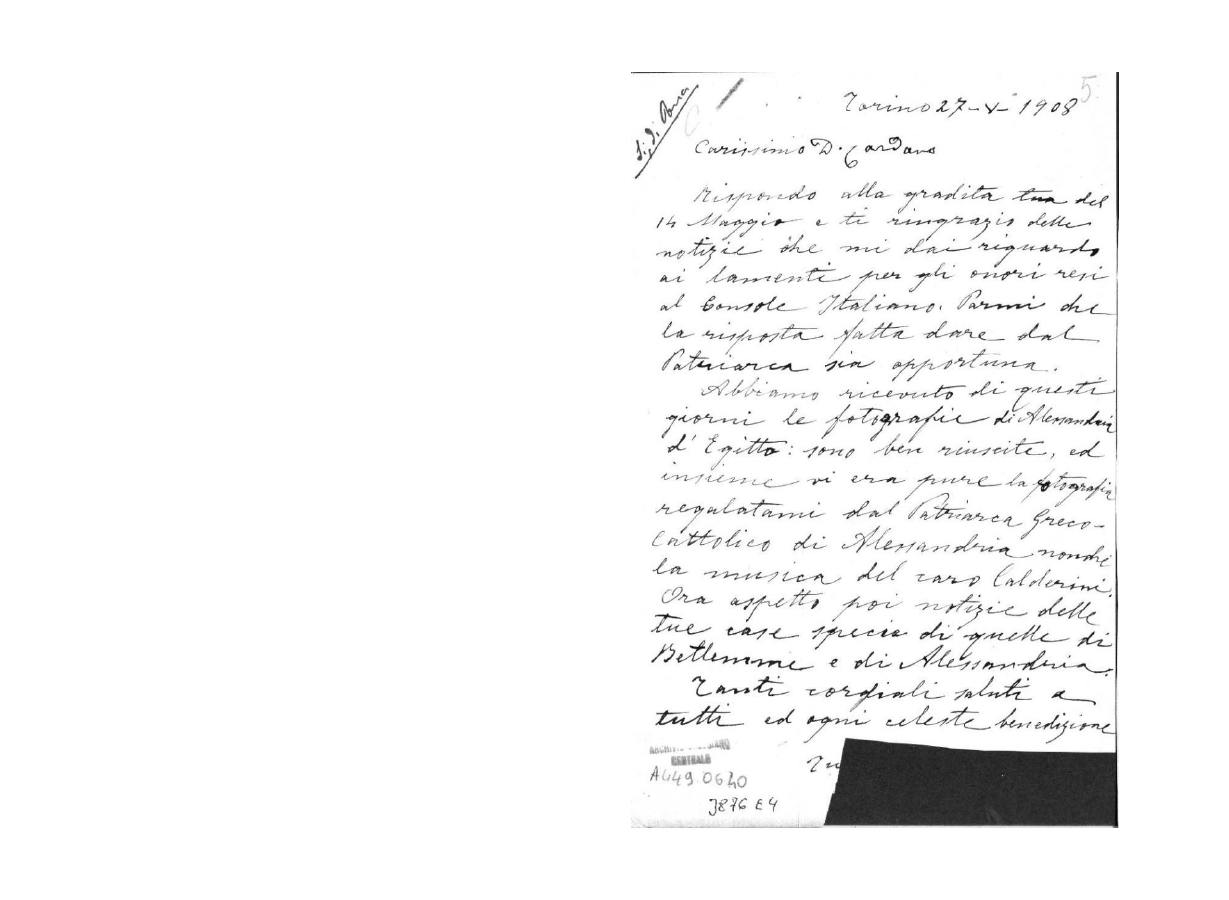 5.
Torino 27-V-1908
Carissimo D. Cardano
Rispondo alla gradita tua del
14 Maggio e ti ringrazio delle
notizie che mi dai riguardo
ai lamenti per gli onori resi
al Console Italiano. Parmi che
la risposta fatta dare dal
Patriarca sia opportuna.
Abbiamo ricevuto di questi
giorni le fotografie di Alessandria
d'Egitto: sono ben riuscite, ed
insieme vi era pure la fotografia
regalatami dal Patriarca Greco-
Cattolico di Alessandria nonchè
la musica del caro Calderini.
Ora aspetto poi notizie delle
tue case specie di quelle di
Betlemme e di Alessandria.
Tanti cordiali saluti a
tutti ed ogni celeste benedizione
ARCHIVIO SALESIANO
CENTRALE
A449.0640
3876 E4